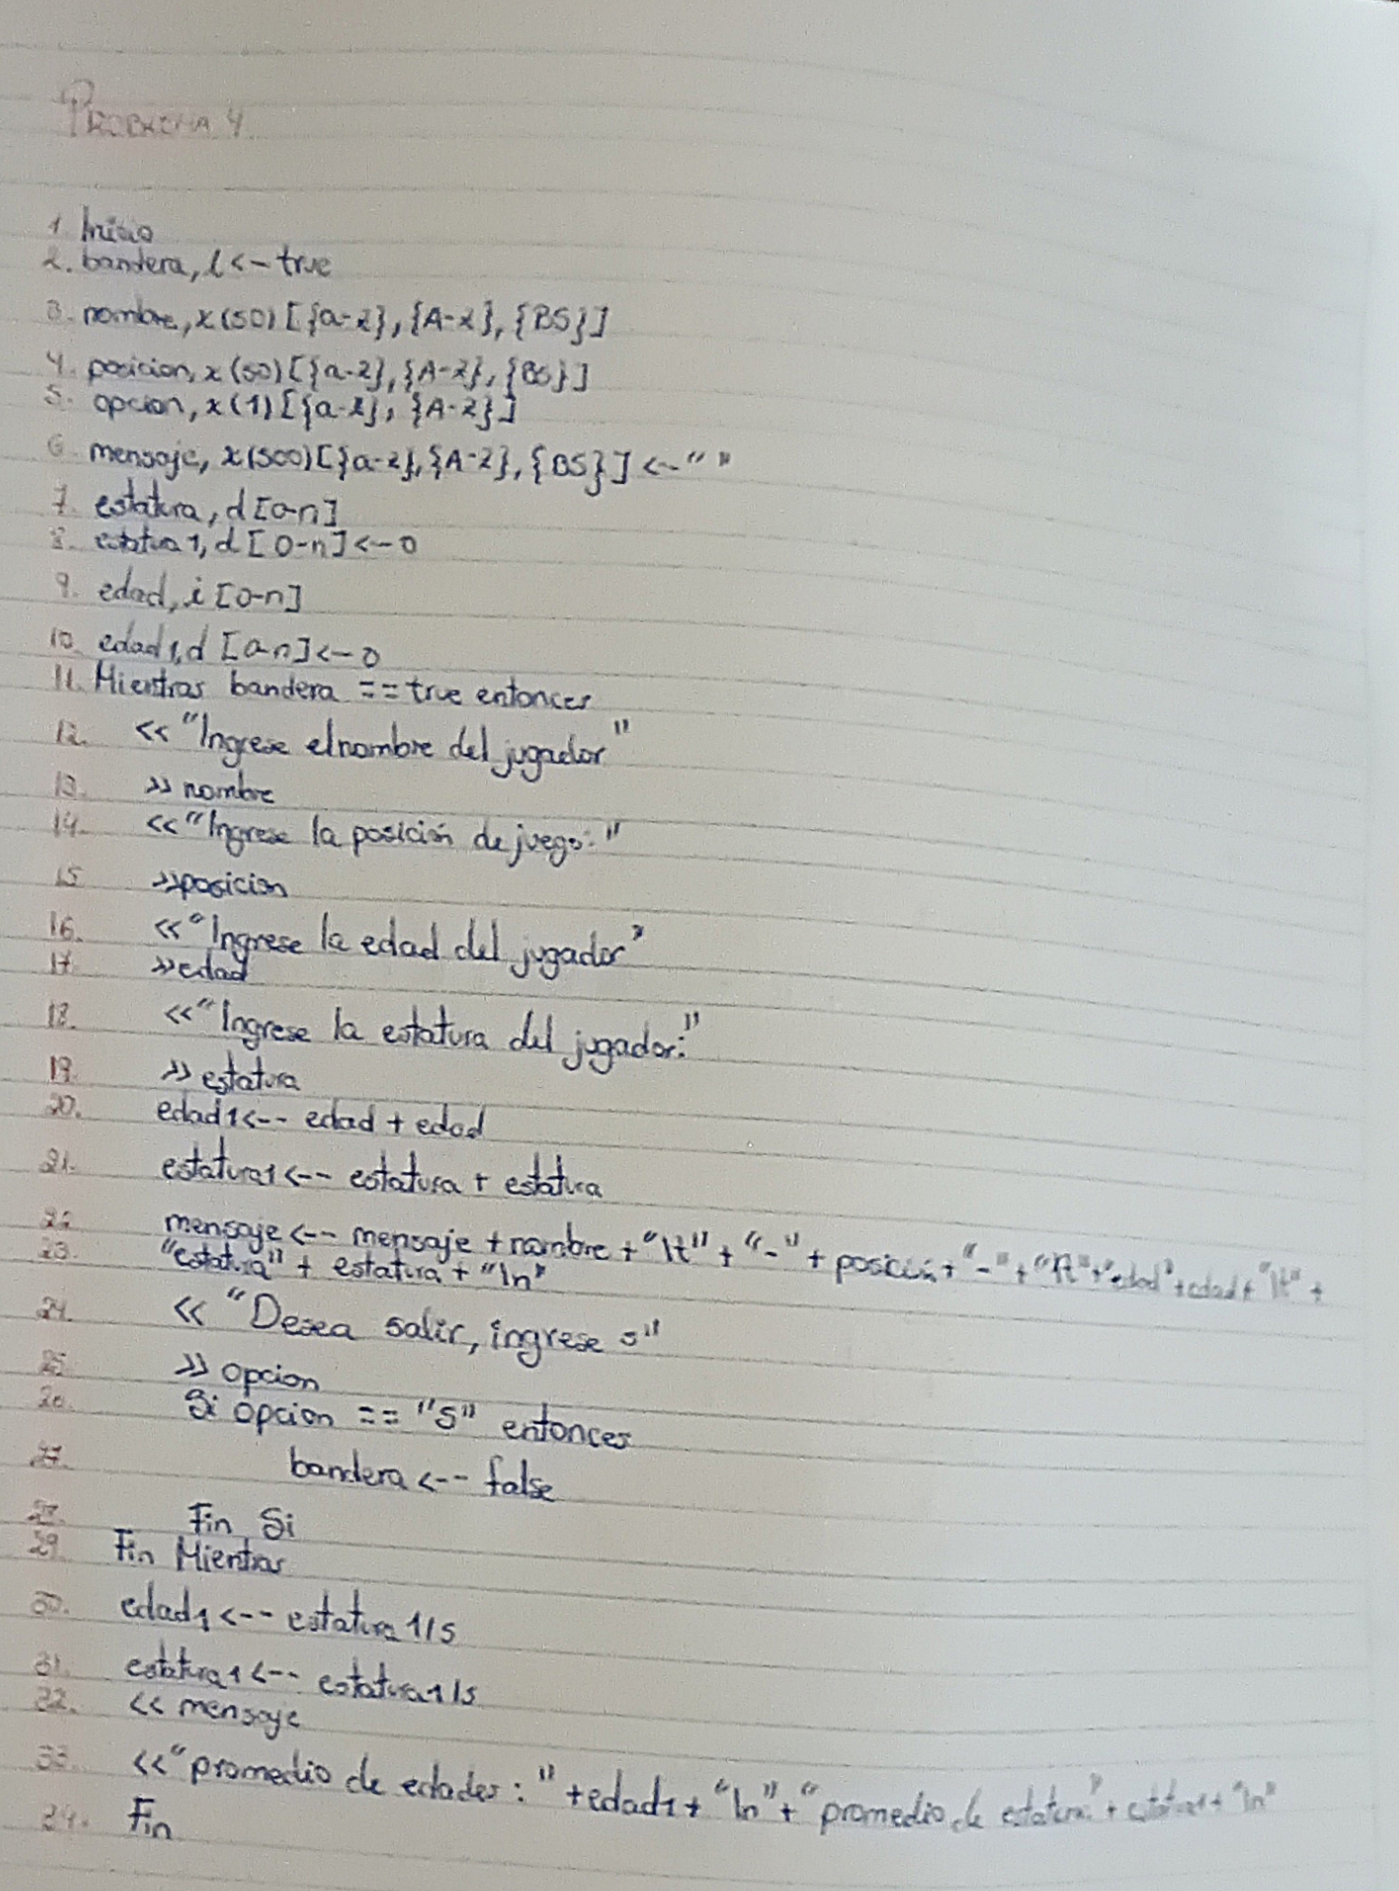 PROBLEMA 4
1. Inicio
2. bandera, l <- true
3. nombre, x(50) [{a-z}, {A-z}, {BS}]
4. posicion, x (50) [{a-z}, {A-z}, {BS}]
5. opcion, x(1) [{a-z}, {A-z}]
6. mensaje, x(500) [{a-z}, {A-z}, {BS}] <-- " "
7. estatura, d [0-n]
8. estatura 1, d [0-n] <-- 0
9. edad, i [0-n]
10. edad1, d [0-n] <-- 0
11. Mientras bandera == true entonces
12. << "Ingrese el nombre del jugador"
13. >> nombre
14. << "Ingrese la posición de juego: "
15 >> posicion
16. << "Ingrese la edad del jugador"
17 >> edad
18. << "Ingrese la estatura del jugador:"
19. >> estatura
20. edad1 <-- edad + edad
21. estatura1 <-- estatura + estatura
22 mensaje <-- mensaje + nombre + "\t" + "-" + posición + "-" + "\t" + "edad" + edad + "\t" +
23. "estatura" + estatura + "\n"
24. << "Desea salir, ingrese s"
25 >> opcion
26. Si opcion == "S" entonces
27. bandera <-- false
28. Fin Si
29. Fin Mientras
30. edad1 <-- estatura 1/5
31. estatura1 <-- estatura1/5
32. << mensaje
33. << "promedio de edades: " + edad1 + "\n" + "promedio de estatura:" + estatura1 + "\n"
34. Fin